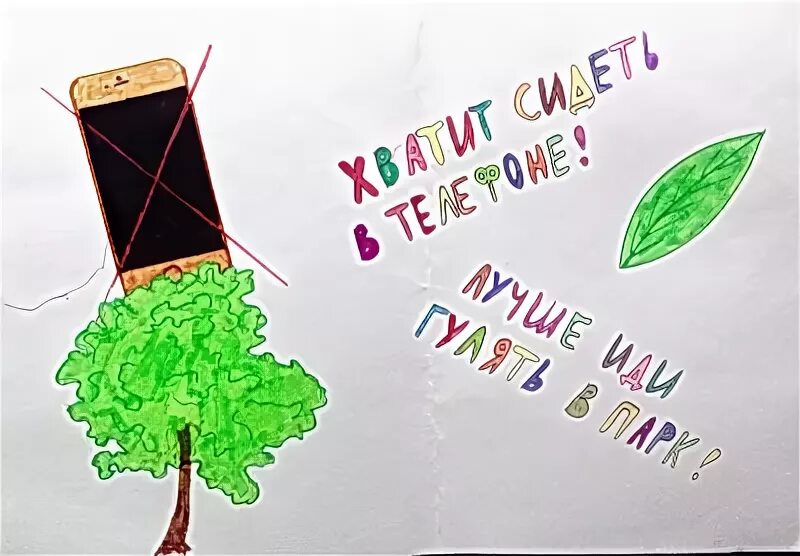 ХВАТИТ СИДЕТЬ
В ТЕЛЕФОНЕ!
ЛУЧШЕ ИДИ
ГУЛЯТЬ В ПАРК!